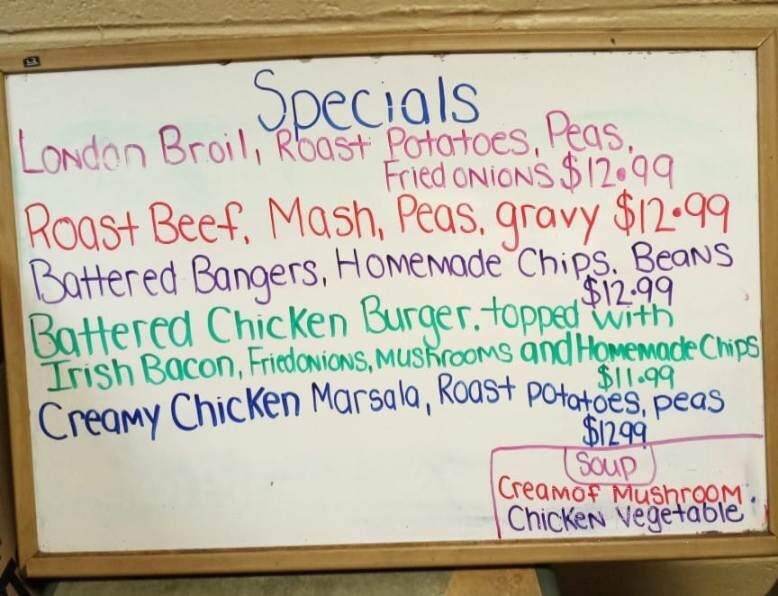 Specials
London Broil, Roast Potatoes, Peas,
Fried onions $12.99
Roast Beef, Mash, Peas, gravy $12.99
Battered Bangers, Homemade Chips, Beans
$12.99
Battered Chicken Burger, topped with
Irish Bacon, Fried onions, Mushrooms and Homemade Chips
$11.99
Creamy Chicken Marsala, Roast potatoes, peas
$1299
Soup
Cream of Mushroom
Chicken Vegetable